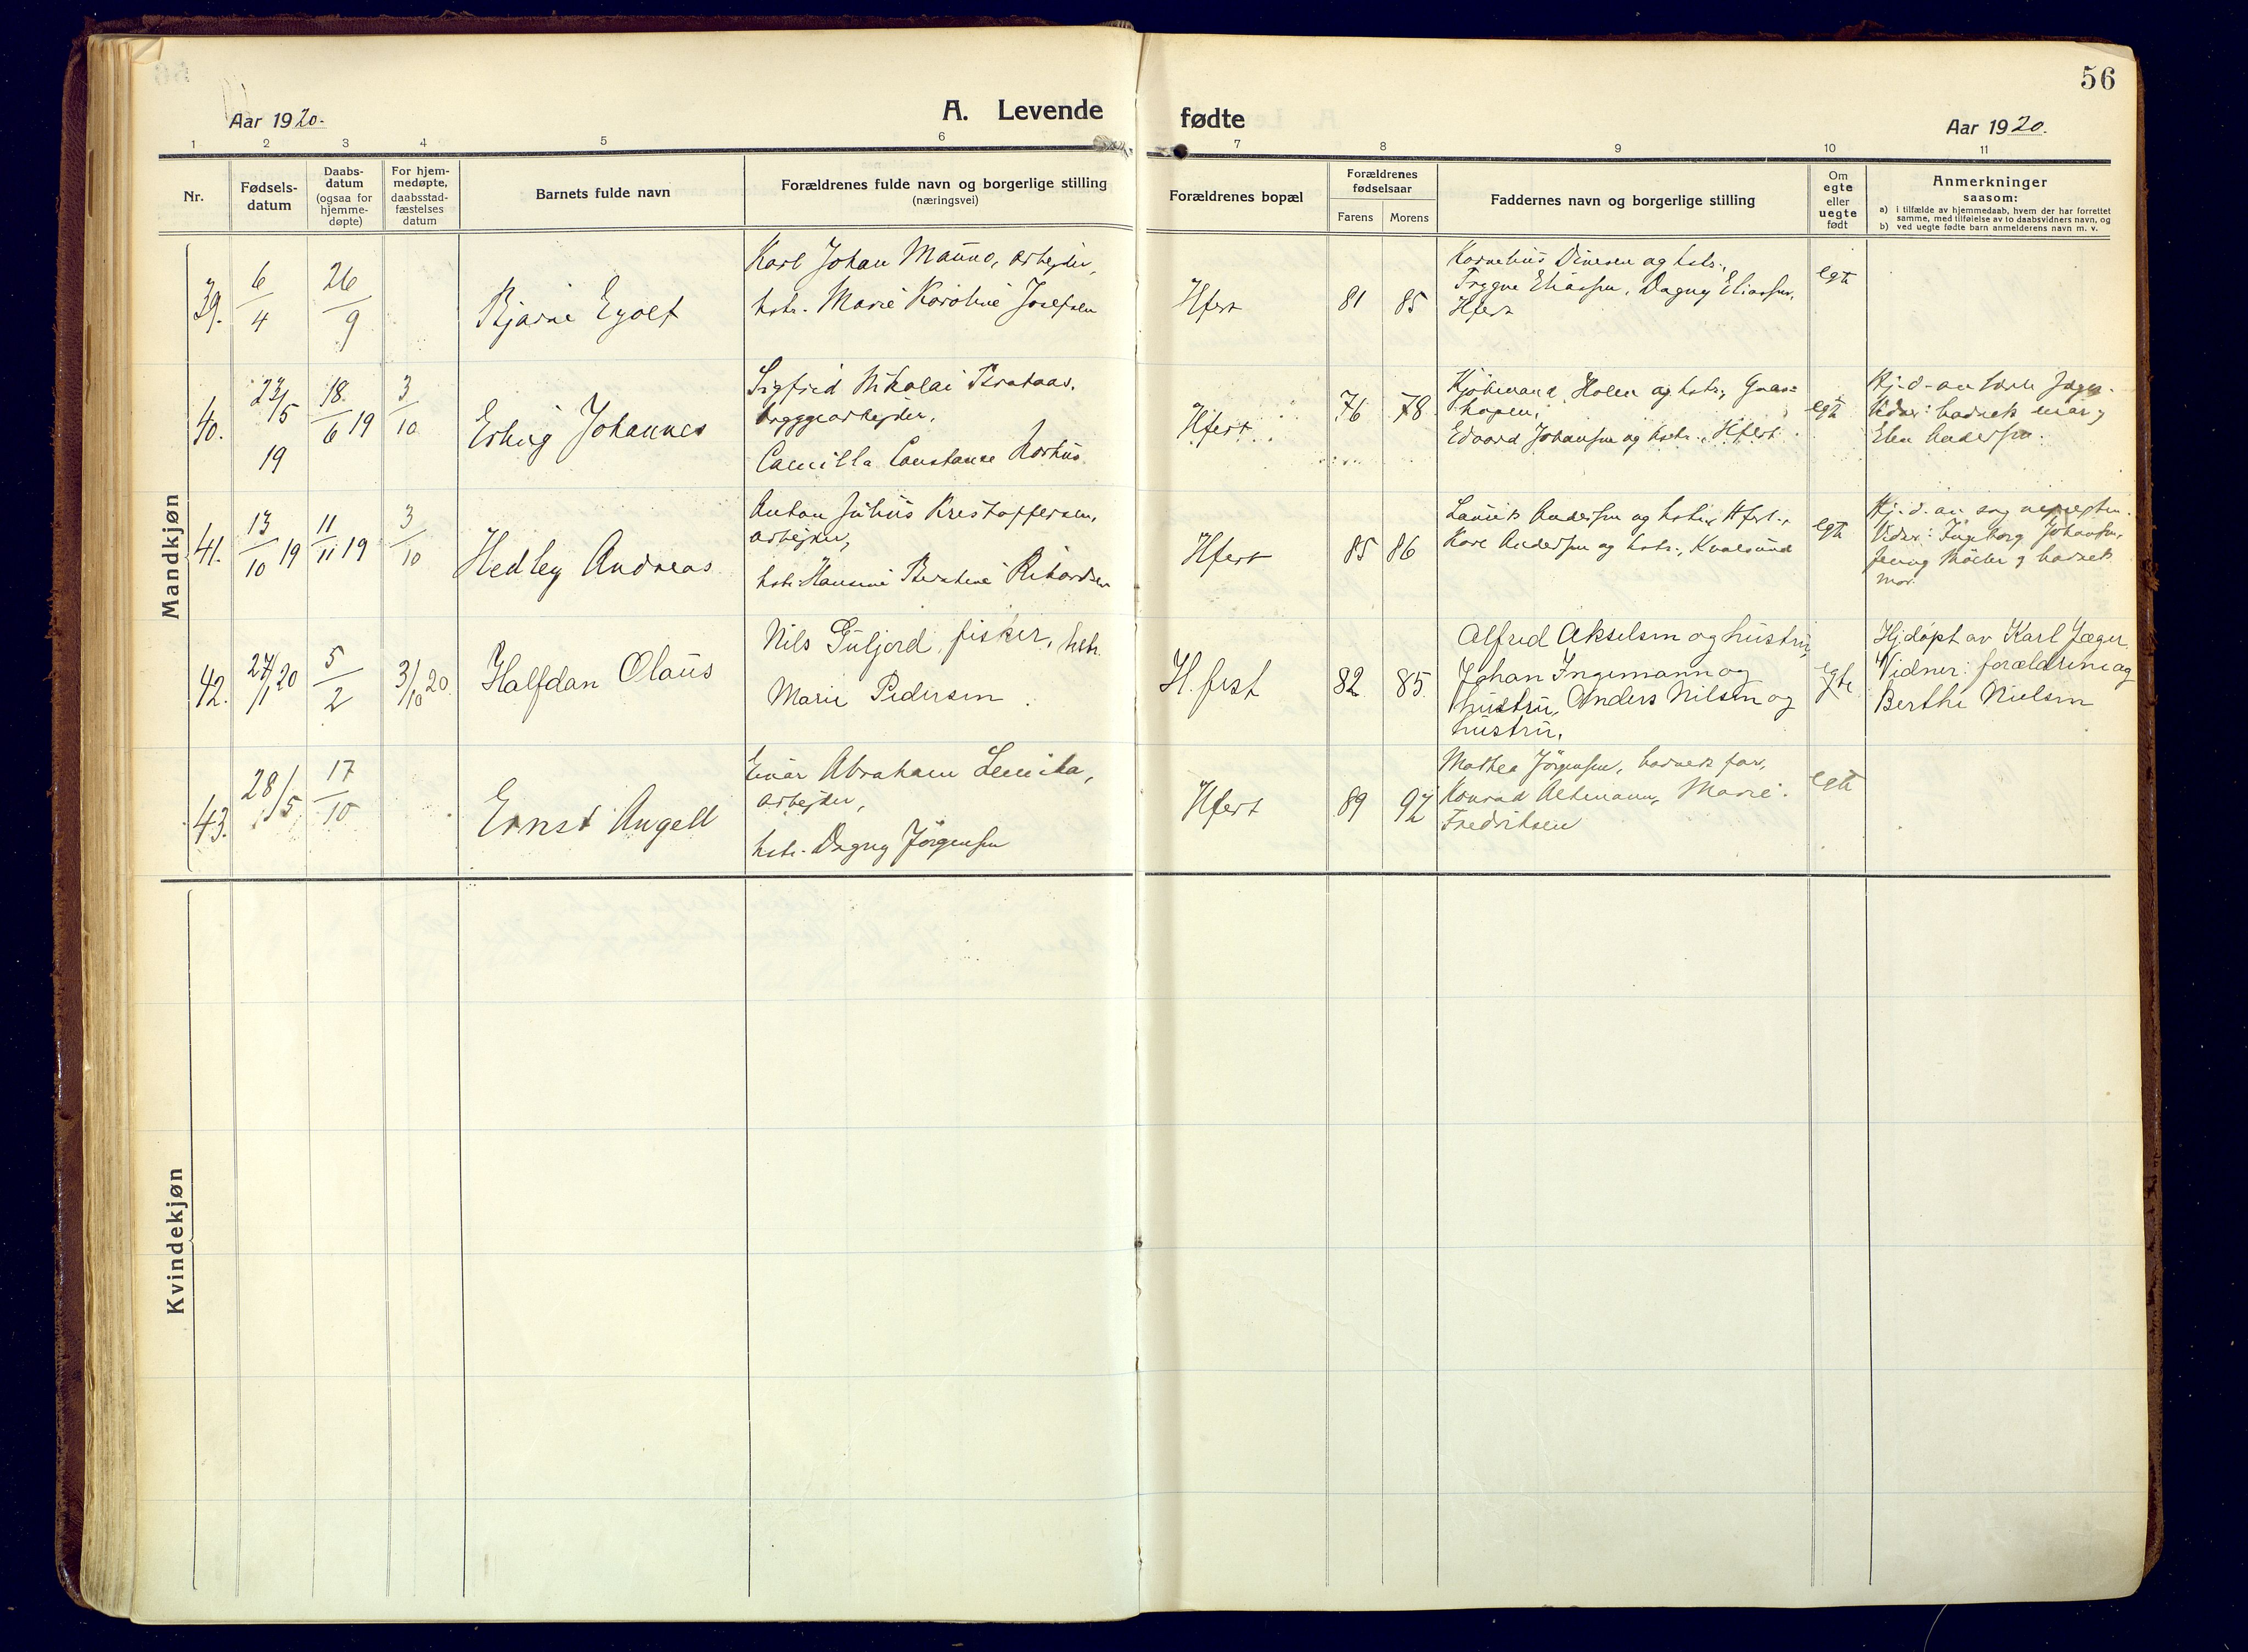 56
Aar 1920.
A. Levende fødte
Aar 1920.
1 2 3 4 5 6 7 8 9 10 11
Nr.
Fødsels-
datum
Daabs-
datum
(ogsaa for
hjemme-
døpte)
For hjem-
medøpte,
daabsstad-
fæstelses
datum
Barnets fulde navn
Forældrenes fulde navn og borgerlige stilling
(næringsvei)
Forældrenes bopæl
Forældrenes
fødselsaar
Farens Morens
Faddernes navn og borgerlige stilling
Om
egte
eller
uegte
født
Anmerkninger
saasom:
a) i tilfælde av hjemmedaab, hvem der har forrettet
samme, med tilføielse av to daabsvidners navn, og
b) ved uegte fødte barn anmelderens navn m. v.
Mandkjøn
39.
6/4
26/9
Bjarne Eyolf
Karl Johan Mauno, arbejder,
hstr. Marie Karoline Josefsen
Hfest
81 85
Kornelius Dinesen og hstr.,
Trygve Eliassen, Dagny Eliassen,
Hfest
egte
40.
23/5
19
18/6 19
3/10
Erling Johannes
Sigfred Nikolai Brataas,
bryggearbejder,
Camilla Constanse
Hfest
76 78
Kjøbmand Holen og hstr.,
Edvard Johansen og hstr., Hfest
egte
Hj.d. av
Vidner: barnets mor og
Andersen.
41.
13/10 19
11/11 19
3/10
Hedley Andreas
Anton Julius Kristoffersen,
arbejder,
hstr. Hansine Rikardsen
Hfest
85 86
Laurits Andersen og hstr., Hfest.,
Karl Andersen og hstr., Kvalsund
egte
Hj.d. av
Vidner: Ingeborg Johansen,
Jenny og barnets
mor.
42.
27/1 20
5/2
3/10 20
Halfdan Olaus
Nils Guljord, fisker, hstr.
Marie Pedersen.
H.fest
82 85.
Alfred Akselsen og hustru,
Johan Ingemann og
hustru, Anders Nilsen og
hustru.
egte
Hjdøpt av Karl Jæger.
Vidner: forældrene og
Berthe Nielsen
43.
28/5
17/10
Ernst Angell
Einar Abraham
arbejder,
hstr. Dagny Jörgensen
Hfest
89 92
Mathea Jörgensen, barnets far,
Konrad Marie
Fredriksen
egte
Kvindekjøn